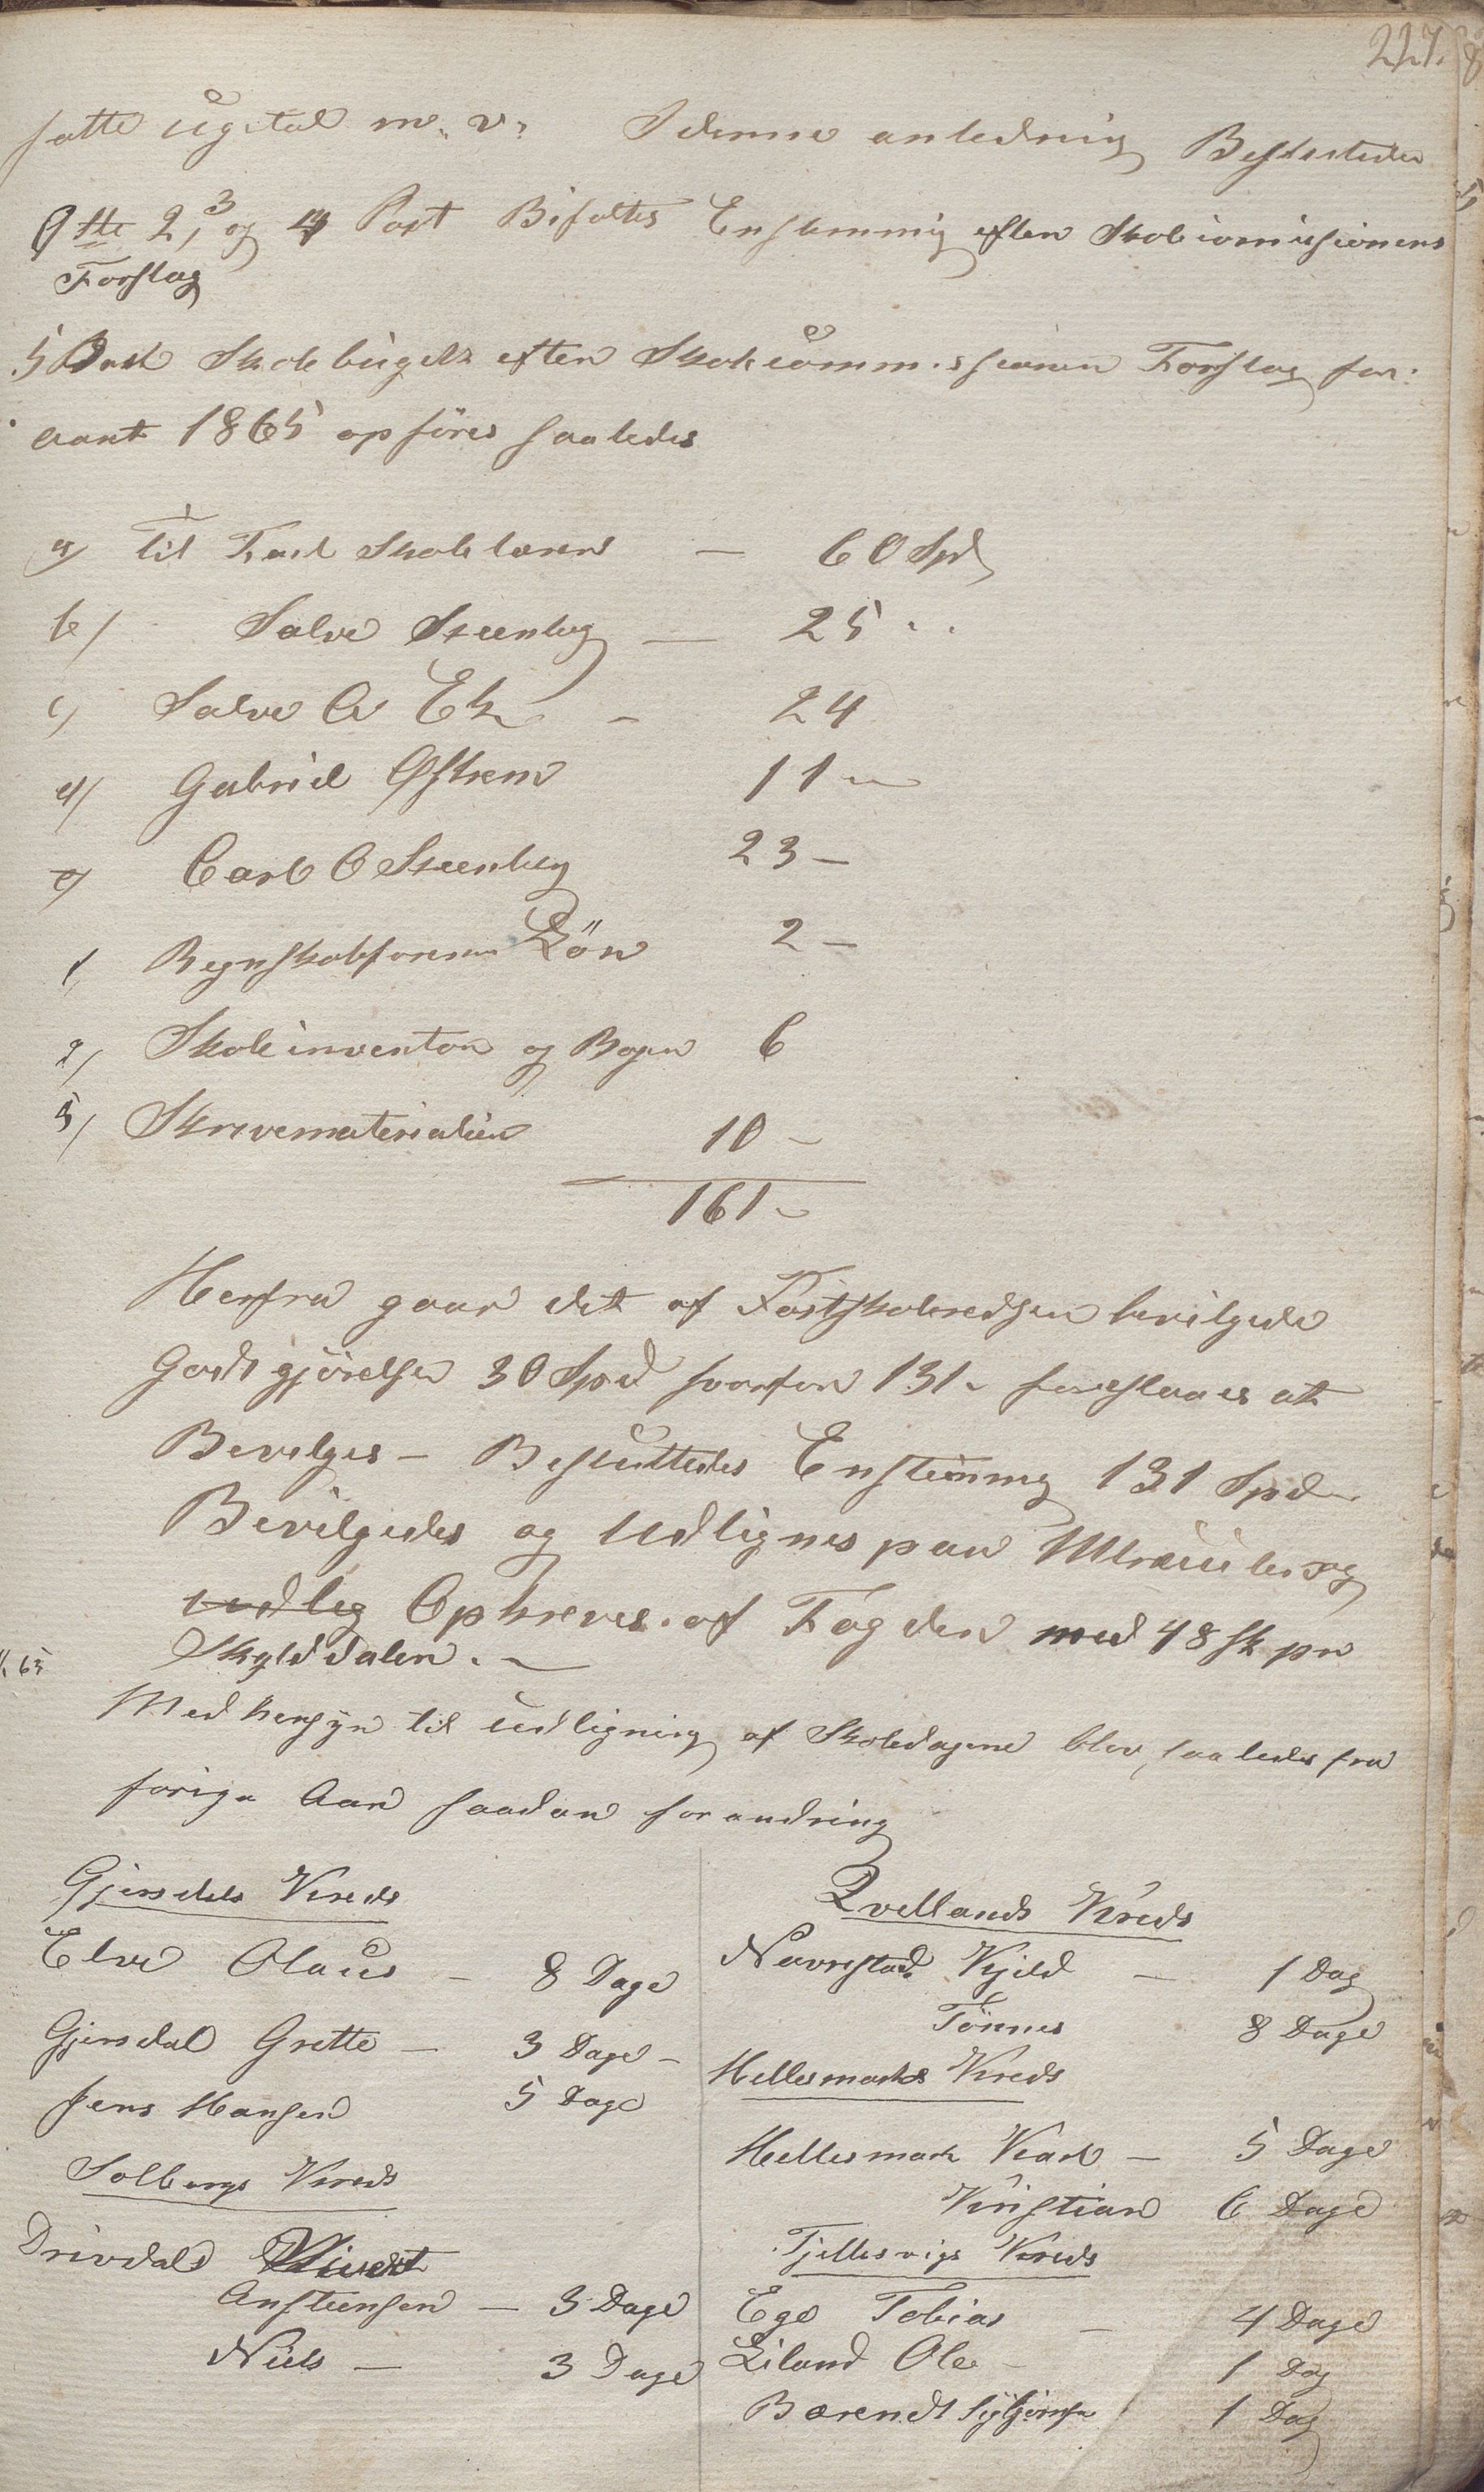 227.
satte Ugetal m. v. I denne anledning Besluttedes
1ste 2, 3 og 4 Post Bifaltes Enstemmig efter Skolecomisionens
Forslag
5 Post Skolebugets efter Skolecommissionen Forslag for
aaret 1865 opföres saaledes
a) Til Fast Skolelærer — 60 Spd
b) Salve Steenberg — 25 "
c) Salve O Ek — 24
d) Gabriel Østrem 11 —
e) Carl O Steenberg 23 —
f) Regnskabsföreren Lön 2 —
g) Skoleinventar og Bøger 6
h) Skrivematerialier 10 —
161 —
Herfra gaar det af Fastskolekredsen bevilgede
Godtgjörelse 30 Spd hvorfor 131 foreslaaes at
Bevilges — Besluttedes Enstemmig 131 Spd
Bevilgedes og Udlignes paa Matriculen og
udlig Opkreves af Fogden med 48 sk pr
Skylddaler. —
65
Med hensyn til Udligning af Skoledagene blev saaledes fra
forige Aar saadan forandring
Gjersdals Kreds
Elve Olaus — 8 Dage
Gjersdal Grette — 3 Dage —
Jens Hansen 5 Dage
Solbergs Kreds
Drivdal Sivert
Anstensen — 3 Dage
Niels — 3 Dage
Qvellands Kreds
Navrestad Kjeld — 1 Dag
Tönnes 8 Dage
Hellesmarks Kreds
Hellesmark Karl — 5 Dage
Kristian 6 Dage
Tjellesvigs Kreds
Ege Tobias — 4 Dage
Eiland Ole — 1 Dag
Barendt 1 Dag